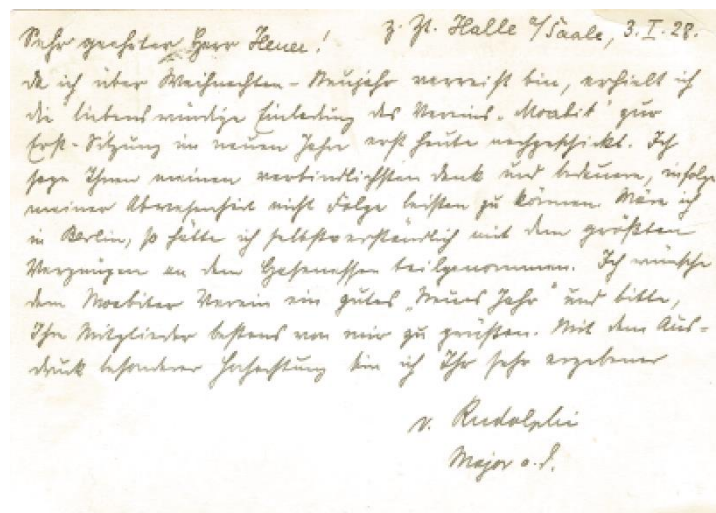 z. Zt. Halle a/Saale, 3.I.28.
Sehr geehrter Herr Heuer!
da ich über Weihnachten-Neujahr verreist bin, erhielt ich
die liebenswürdige Einladung des Vereins „Moabit" zur
Erst-Sitzung im neuen Jahr erst heute nachgeschickt. Ich
sage Ihnen meinen verbindlichsten Dank und bedauere, infolge
meiner Abwesenheit nicht Folge leisten zu können. Wäre ich
in Berlin, so hätte ich selbstverständlich mit dem größten
Vergnügen an dem Hasenessen teilgenommen. Ich wünsche
dem Moabiter Verein ein gutes „Neues Jahr" und bitte,
Ihre Mitglieder bestens von mir zu grüßen. Mit dem Aus-
druck besonderer Hochachtung bin ich Ihr sehr ergebener
v. Rudolphi
Major a. D.